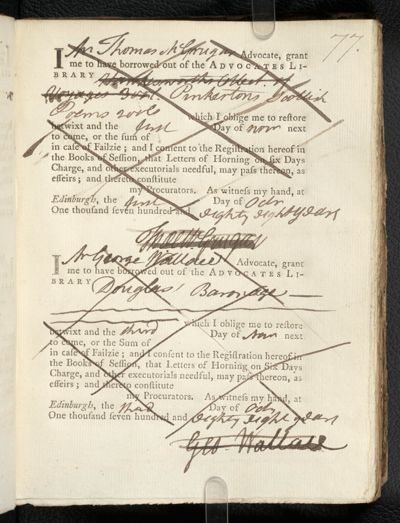 77.
I Mr Thomas McGrugar Advocate, grant
me to have borrowed out of the ADVOCATES LI-
BRARY Hawkesworth's Collect. of
Voyages 3 vol. Pinkerton's Scotish
Poems 2 vols which I oblige me to restore
betwixt and the first Day of Novr next
to come, or the sum of
in case of Failzie; and I consent to the Registration hereof in
the Books of Session, that Letters of Horning on six Days
Charge, and other executorials needful, may pass thereon, as
effeirs; and thereto constitute
my Procurators. As witness my hand, at
Edinburgh, the first Day of Octr
One thousand seven hundred and eighty eight years
Tho McGrugar
I Mr George Wallace Advocate, grant
me to have borrowed out of the ADVOCATES LI-
BRARY Douglas' Baronage
which I oblige me to restore
betwixt and the third Day of Nov next
to come, or the Sum of
in case of Failzie; and I consent to the Registration hereof in
the Books of Session, that Letters of Horning on Six Days
Charge, and other executorials needful, may pass thereon, as
effeirs; and thereto constitute
my Procurators. As witness my hand, at
Edinburgh, the third Day of Octr
One thousand seven hundred and eighty eight years
Geo Wallace